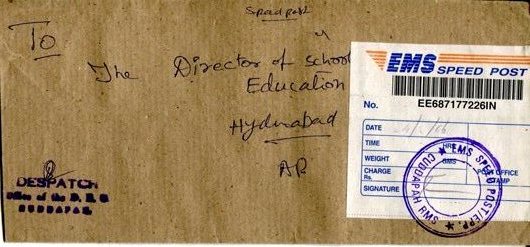 Speed post
To
The Director of School
Education
Hyderabad
AP
DESPATCH
Office of the D. E. O
CUDDAPAH.
EMS SPEED POST
No. EE687177226IN
DATE
TIME HRS
WEIGHT GMS
CHARGE Rs. POST OFFICE STAMP
SIGNATURE
EMS SPEED POST
CUDDAPAH RMS